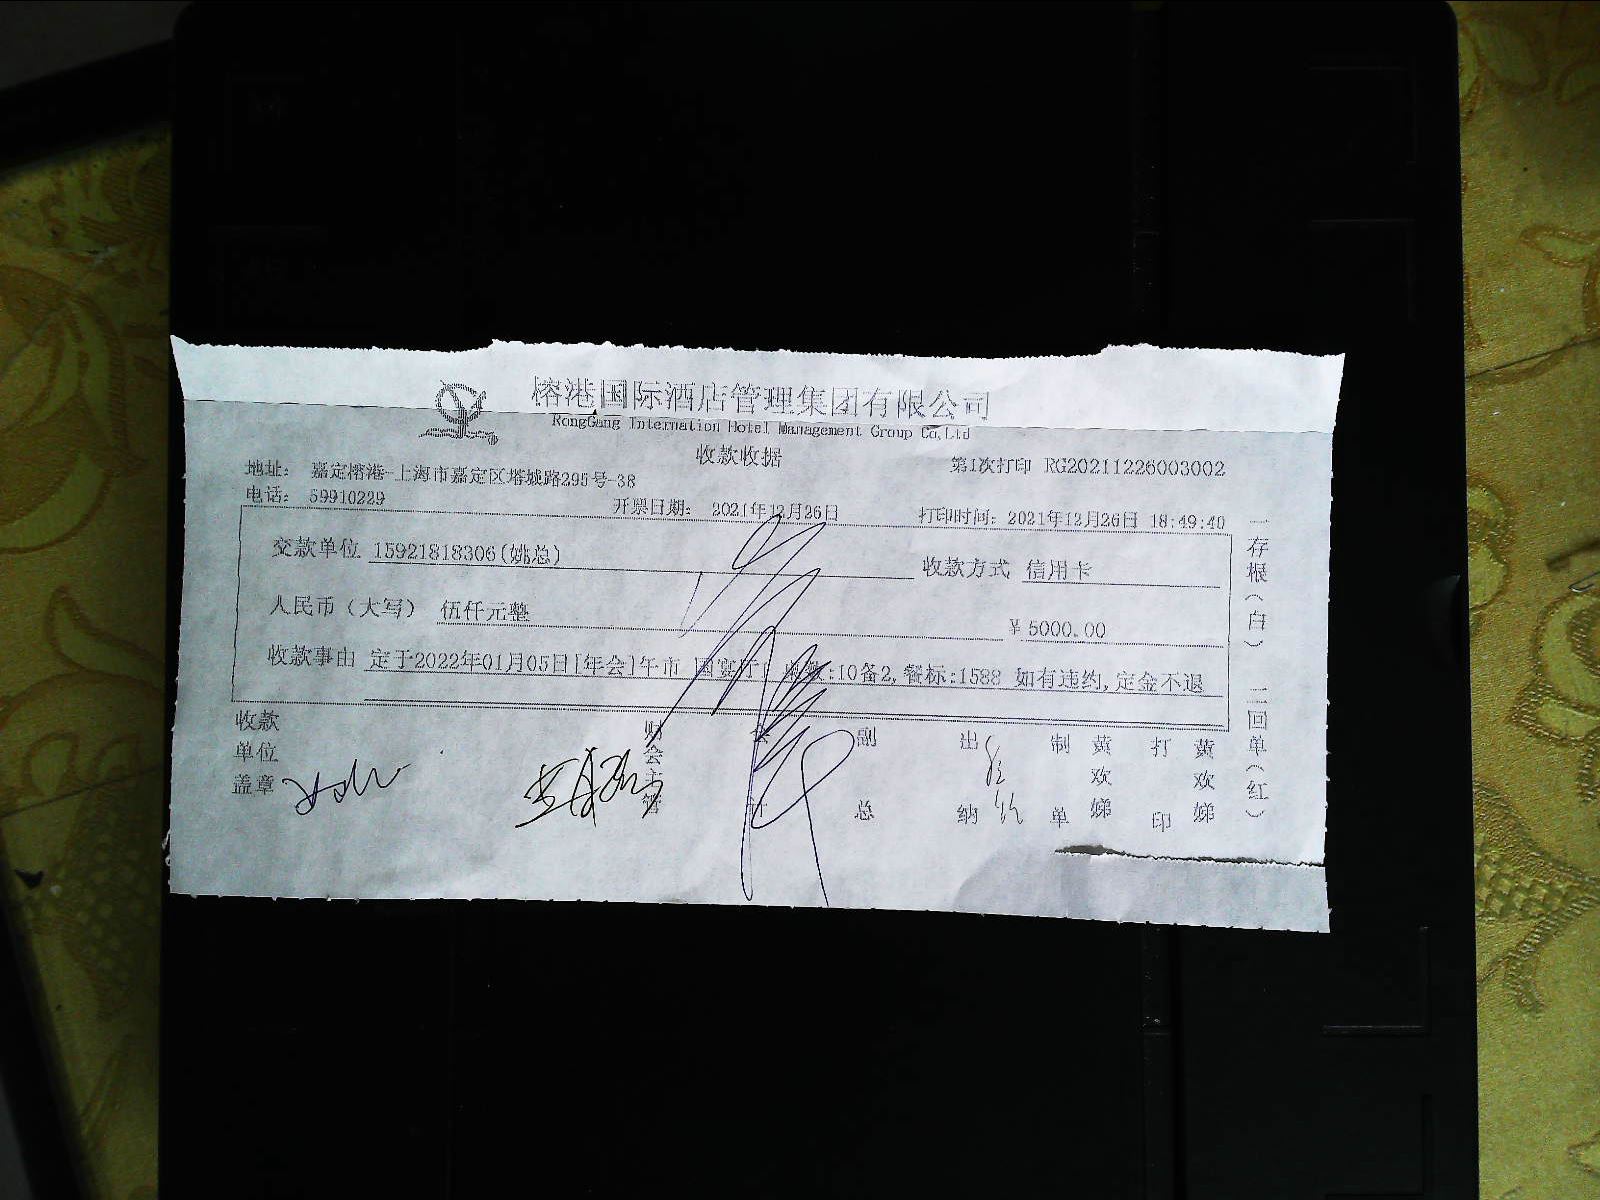 榕港国际酒店管理集团有限公司
RongGang Internation Hotel Management Group Co,Ltd
收款收据
地址： 嘉定榕港-上海市嘉定区塔城路295号-38
第1次打印 RG20211226003002
电话： 59910229
开票日期： 2021年12月26日
打印时间：2021年12月26日 18:49:40
交款单位 15921818306(姚总)
收款方式 信用卡
人民币（大写） 伍仟元整
¥5000.00
收款事由 定于2022年01月05日[年会]午市 国宴厅 桌数:10备2,餐标:1588 如有违约,定金不退
收款单位盖章
财会主管
会计
副总
出纳
制单 黄欢娣
打印 黄欢娣
一存根（白） 二回单（红）